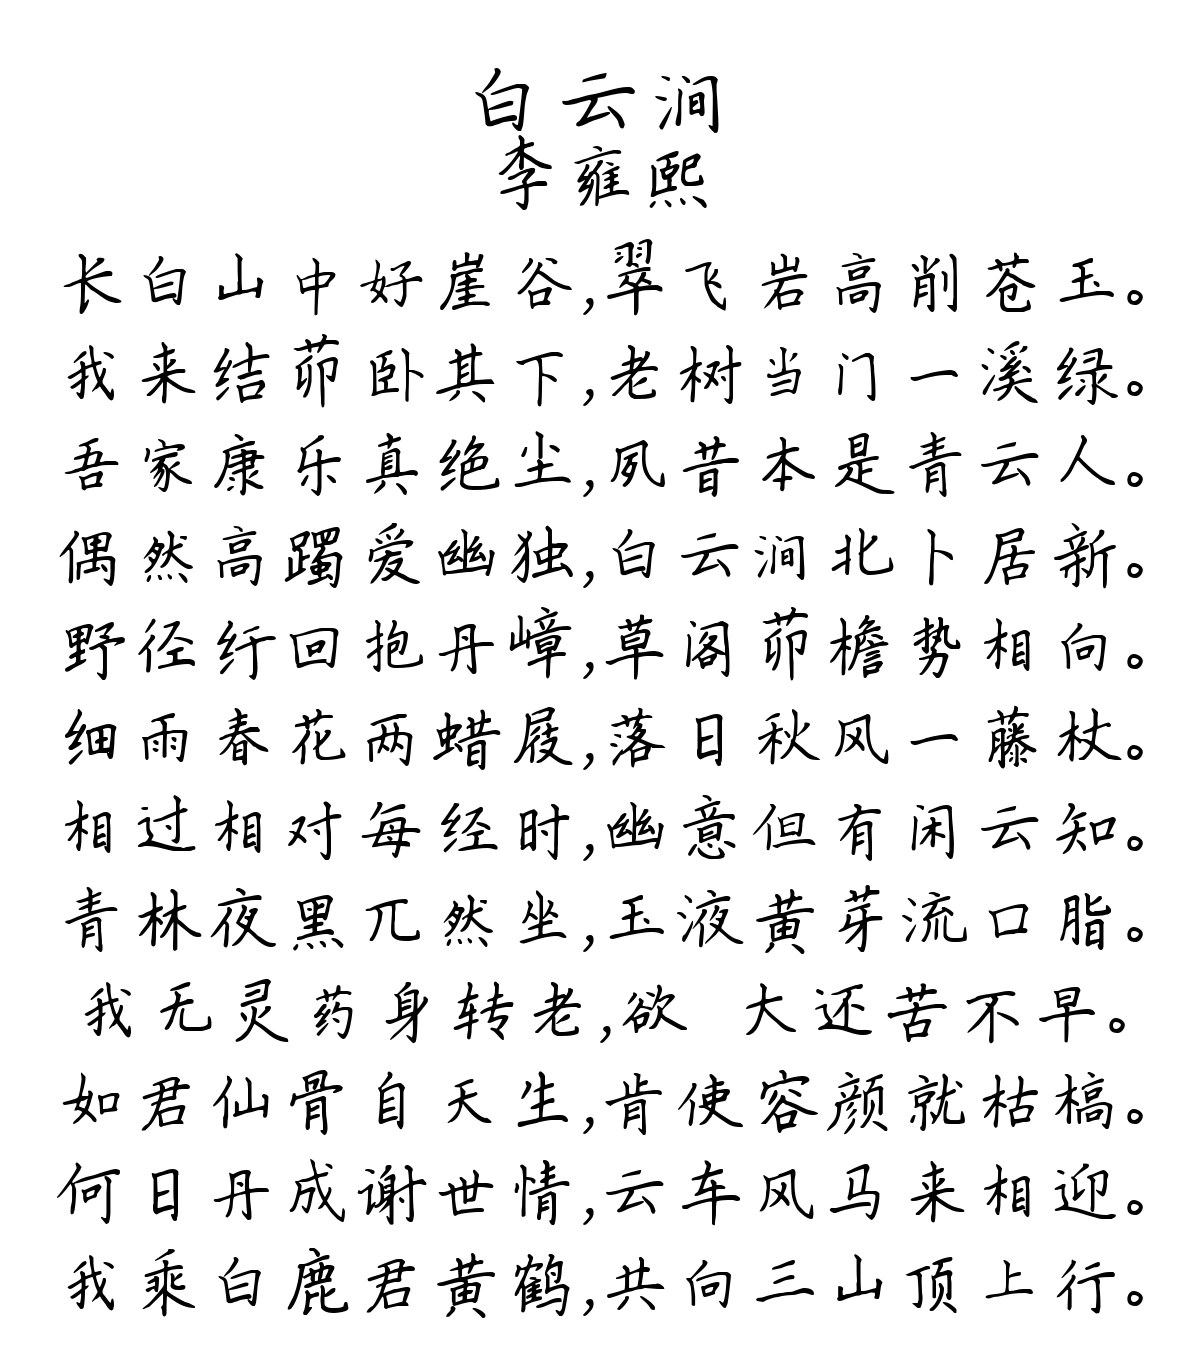 白云涧
李雍熙
长白山中好崖谷,翠飞岩高削苍玉。
我来结茆卧其下,老树当门一溪绿。
吾家康乐真绝尘,夙昔本是青云人。
偶然高躅爱幽独,白云涧北卜居新。
野径纡回抱丹嶂,草阁茆檐势相向。
细雨春花两蜡屐,落日秋风一藤杖。
相过相对每经时,幽意但有闲云知。
青林夜黑兀然坐,玉液黄芽流口脂。
我无灵药身转老,欲 大还苦不早。
如君仙骨自天生,肯使容颜就枯槁。
何日丹成谢世情,云车风马来相迎。
我乘白鹿君黄鹤,共向三山顶上行。